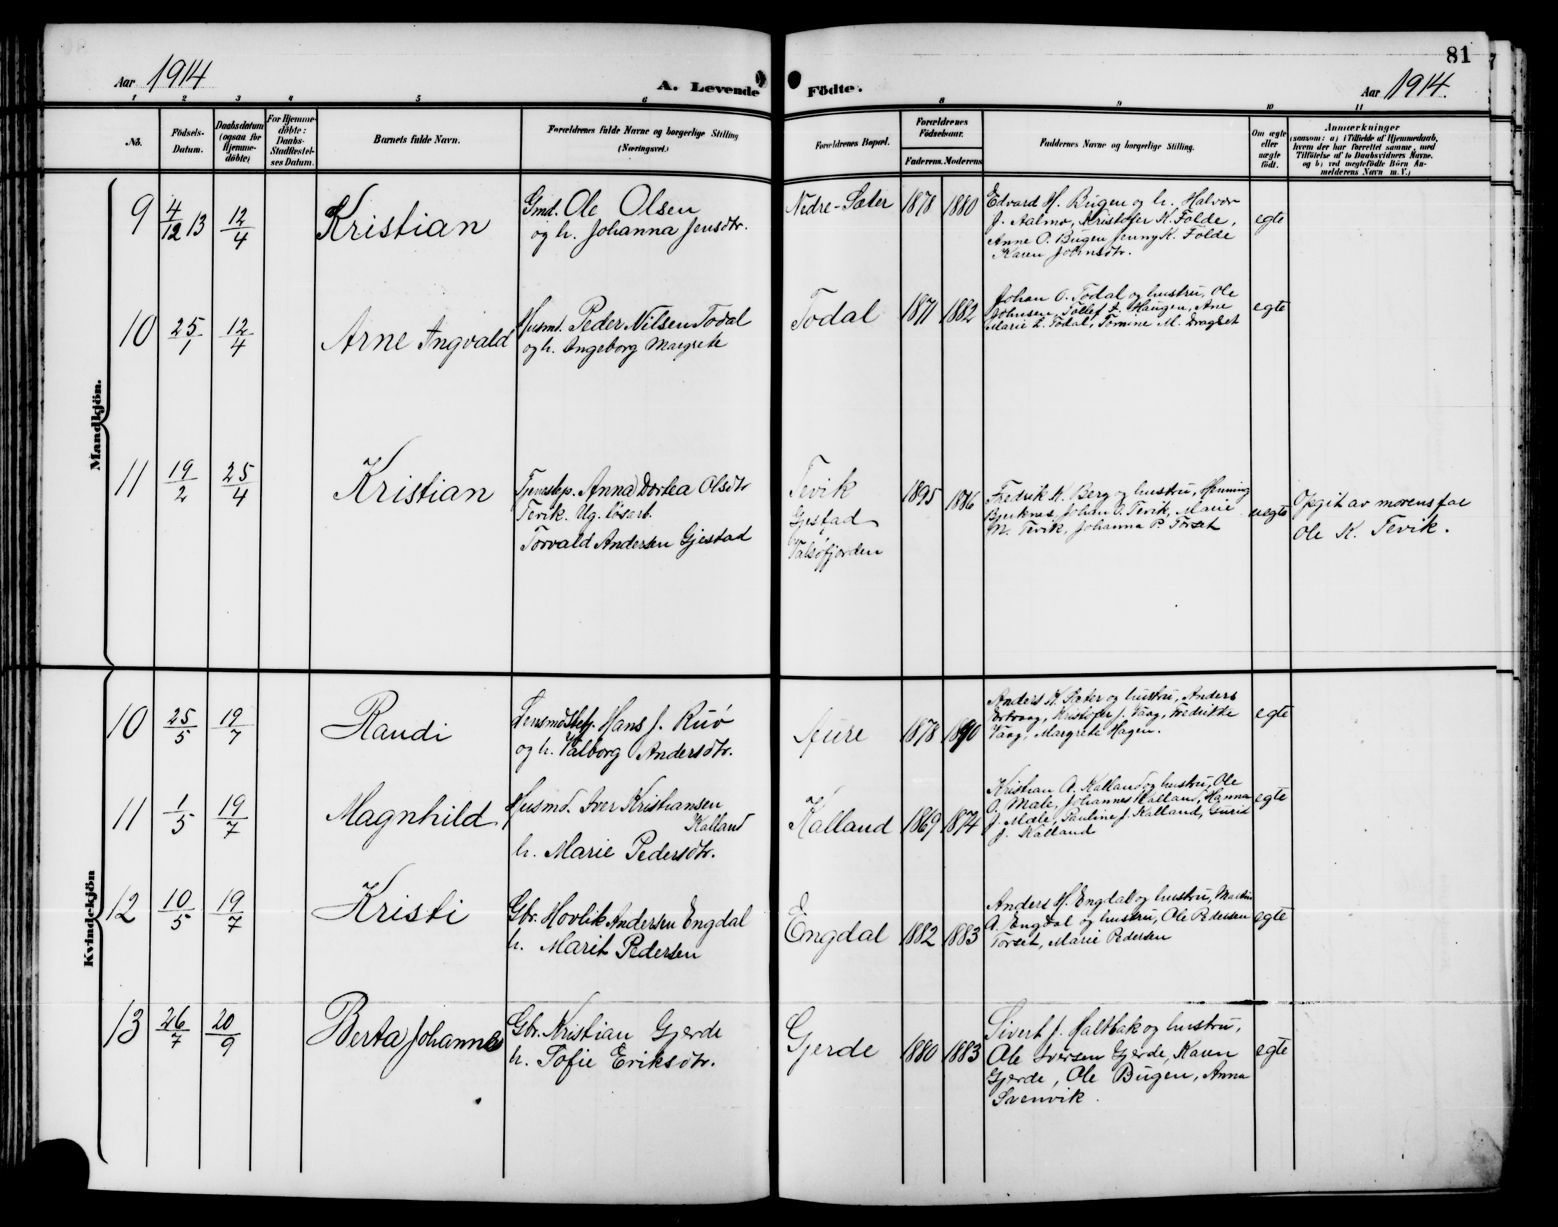 81
Aar 1914
A. Levende
Födte.
Aar 1914.
1 2 3 4 5 6 8 9 10 11
No.
Födsels-
Datum.
Daabsdatum
(ogsaa for
Hjemme-
döbte)
For Hjemme-
döbte:
Daabs-
Stadfæstel-
ses Datum.
Barnets fulde Navn.
Forældrenes fulde Navne og borgerlige Stilling
(Næringsvei.)
Forældrenes Bopæl.
Forældrenes
Födselsaar.
Faderens. Moderens.
Faddernes Navne og borgerlige Stilling.
Om ægte
eller
uægte
födt.
Anmærkninger
(saasom: a) i Tilfælde af Hjemmedaab,
hvem der har forrettet samme, med
Tilföielse af to Daabsvidners Navne.
og b) ved uegtefödte Börn An-
melderens Navn m. V.)
Mandkjön.
9
4/12 13
12/4
Kristian
Gmd. Ole Olsen
og h. Johanna Jensdtr.
Nedre-Sæter
1878
1880
Edvard H. Bugen og h. Halvor
J. Aalmo, Kristofer K. Folde,
Anne O. Bugen Jenny K. Folde
Karen Johnsdtr.
egte
10
25/1
12/4
Arne Ingvald
Husmd. Peder Nilsen Todal
og h. Ingeborg Margrete
Todal
1871
1882
Johan O. Todal og hustru, Ole
Johnsen, Tollef I. Haugen, Ane
Marie L. Todal, Tomine M. Dragset
egte
11
19/2
25/4
Kristian
Tjenestep. Anna Dortea Olsdtr
Tevik. Ug. løsarb.
Torvald Andersen Gjestad
Tevik
Gjestad
Valsøfjorden
1895
1886
Fredrik K. Berg og hustru, Henning
Bjerknes, Johan O. Tevik, Marie
M. Tevik, Johanna P. Torset
uegte
Opgit av morens far
Ole K. Tevik.
Kvindekjön
10
25/5
19/7
Randi
Lensmdsbetj. Hans J. Ruø
og h. Valborg Andersdtr.
Aure
1878
1890
Anders H. Sæter og hustru, Anders
Ertvaag, Kristofer J. Vaag, Fredrikke
Vaag, Margrete Hagen.
egte
11
1/5
19/7
Magnhild
Husmd. Iver Kristiansen
Kalland
h. Marie Pedersdtr.
Kalland
1869
1874
Kristian A. Kalland og hustru, Ole
J. Mæle, Johannes Kalland, Hanna
J. Mæle, Pauline J. Kalland, Gurid
J. Kalland
egte
12
10/5
19/7
Kristi
Gbr. Hovlik Andersen Engdal
h. Marit Pedersen
Engdal
1882
1883
Anders H. Engdal og hustru,
A. Engdal og hustru, Ole Pedersen
Torset, Marie Pedersen
egte
13
26/7
20/9
Berta Johanne
Gbr. Kristian Gjerde
h. Sofie Eriksdtr.
Gjerde
1880
1883
Sivert J. Haltbak og hustru,
Ole Iversen Gjerde, Karen
Gjerde, Ole Bugen, Anna
Svenvik.
egte